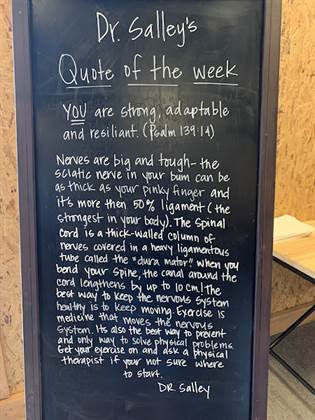 Dr. Salley's
Quote of the week
YOU are strong, adaptable
and resiliant. (Psalm 139:14)
Nerves are big and tough- the
sciatic nerve in your bum can be
as thick as your pinky finger and
it's more then 50% ligament (the
strongest in your body). The spinal
cord is a thick-walled column of
nerves covered in a heavy ligamentous
tube called the "dura mator". When you
bend your spine, the canal around the
cord lengthens by up to 10 cm! The
best way to keep the nervous system
healthy is to keep moving. Exercise is
medicine that moves the nervous
system. Its also the best way to prevent
and only way to solve physical problems.
Get your exercise on and ask a physical
therapist if your not sure where
to start.
DR. Salley